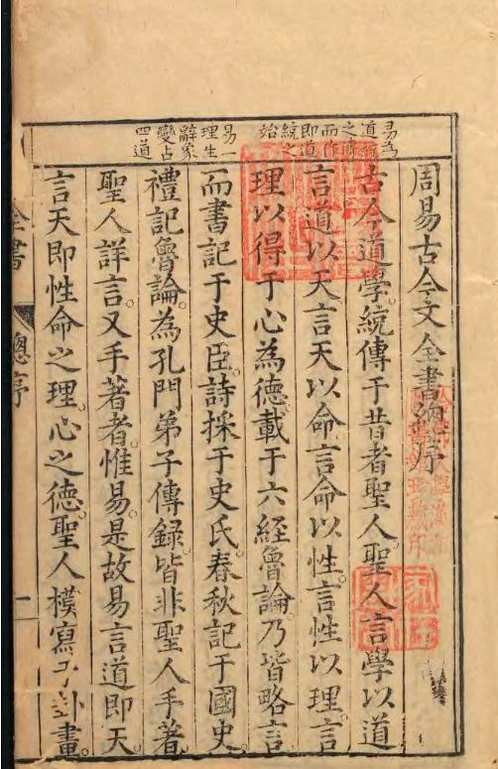 易為
道
之
而作
即道
統之
始
易一
理生
辭象
變占
四道
周易古今文全書總序
古今道學。統傳于昔者聖人。聖人言學以道
言道以天言天以命言命以性。言性以理。言
理以得于心為德。載于六經魯論。乃皆略言
而書記于史臣。詩採于史氏。春秋記于國史。
禮記魯論。為孔門弟子傳録。皆非聖人手著。
聖人詳言。又手著者。惟易。是故易言道即天。
言天即性命之理。心之德。聖人模寫于卦畫。
全書
總序
一